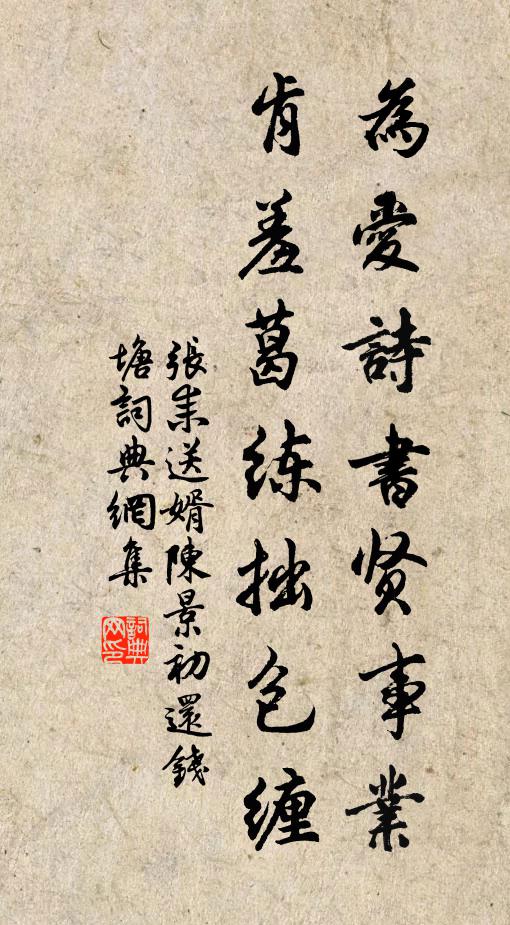 為愛詩書贤事業
肯羞葛练拙包缠
張耒送婿陳景初還錢
塘詞典網集
詞典
网印